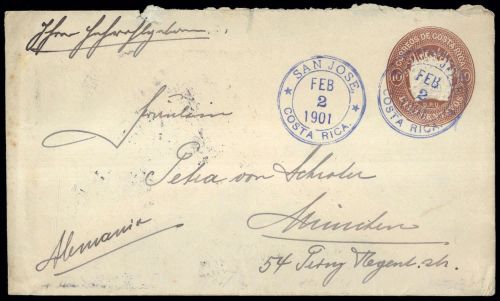 Ihro Hochwohlgeboren
CORREOS DE COSTA RICA
10 10
SAN JOSE,
FEB
2
1901
COSTA RICA.
FEB
2
COSTA RICA.
Fräulein
Petra von Schroter
München
Alemania
54 Prinz Regent. str.